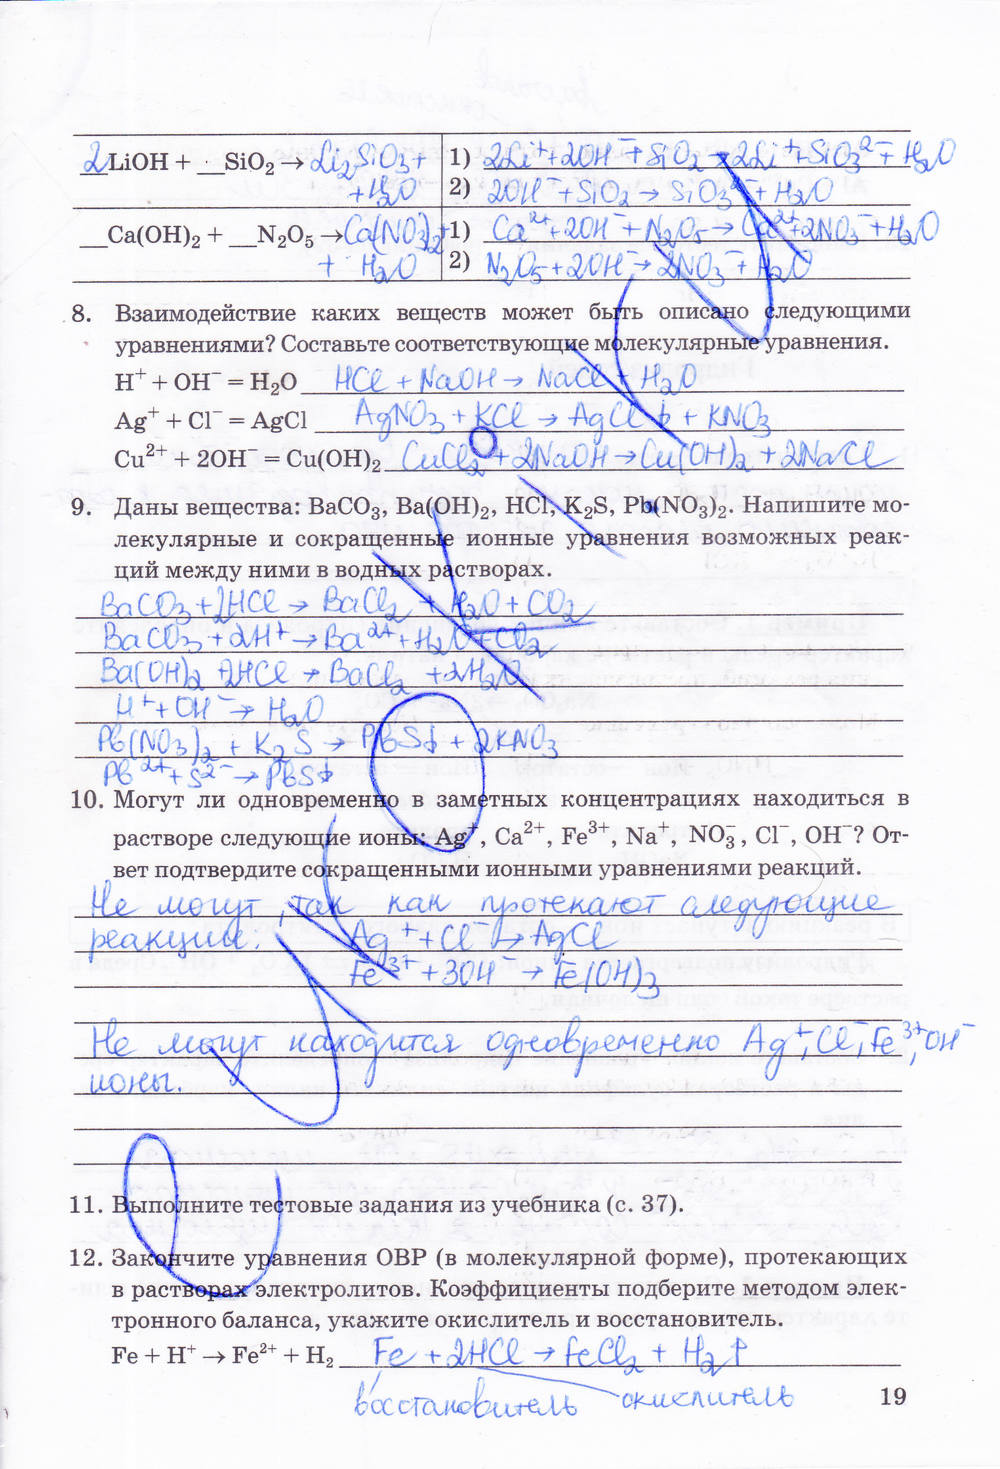 2LiOH + __SiO₂ → Li₂SiO₃ + 1) 2Li⁺+2OH⁻+SiO₂→2Li⁺+SiO₃²⁻+H₂O
+H₂O 2) 2OH⁻+SiO₂→SiO₃²⁻+H₂O
__Ca(OH)₂ + __N₂O₅ → Ca(NO₃)₂+ 1) Ca²⁺+2OH⁻+N₂O₅→Ca²⁺+2NO₃⁻+H₂O
+ H₂O 2) N₂O₅+2OH⁻→2NO₃⁻+H₂O
8. Взаимодействие каких веществ может быть описано следующими
уравнениями? Составьте соответствующие молекулярные уравнения.
H⁺ + OH⁻ = H₂O HCl + NaOH → NaCl + H₂O
Ag⁺ + Cl⁻ = AgCl AgNO₃ + KCl → AgCl↓ + KNO₃
Cu²⁺ + 2OH⁻ = Cu(OH)₂ CuCl₂ + 2NaOH → Cu(OH)₂ + 2NaCl
9. Даны вещества: BaCO₃, Ba(OH)₂, HCl, K₂S, Pb(NO₃)₂. Напишите мо-
лекулярные и сокращенные ионные уравнения возможных реак-
ций между ними в водных растворах.
BaCO₃+2HCl → BaCl₂ + H₂O + CO₂
BaCO₃ + 2H⁺ → Ba²⁺ + H₂O + CO₂
Ba(OH)₂ + 2HCl → BaCl₂ + 2H₂O
H⁺ + OH⁻ → H₂O
Pb(NO₃)₂ + K₂S → PbS↓ + 2KNO₃
Pb²⁺ + S²⁻ → PbS↓
10. Могут ли одновременно в заметных концентрациях находиться в
растворе следующие ионы: Ag⁺, Ca²⁺, Fe³⁺, Na⁺, NO₃⁻, Cl⁻, OH⁻? От-
вет подтвердите сокращенными ионными уравнениями реакций.
Не могут, так как протекают следующие
реакции. Ag⁺ + Cl⁻ → AgCl
Fe³⁺ + 3OH⁻ → Fe(OH)₃
Не могут находится одновременно Ag⁺, Cl⁻, Fe³⁺, OH⁻
ионы.
11. Выполните тестовые задания из учебника (с. 37).
12. Закончите уравнения ОВР (в молекулярной форме), протекающих
в растворах электролитов. Коэффициенты подберите методом элек-
тронного баланса, укажите окислитель и восстановитель.
Fe + H⁺ → Fe²⁺ + H₂ Fe + 2HCl → FeCl₂ + H₂↑
восстановитель окислитель
19